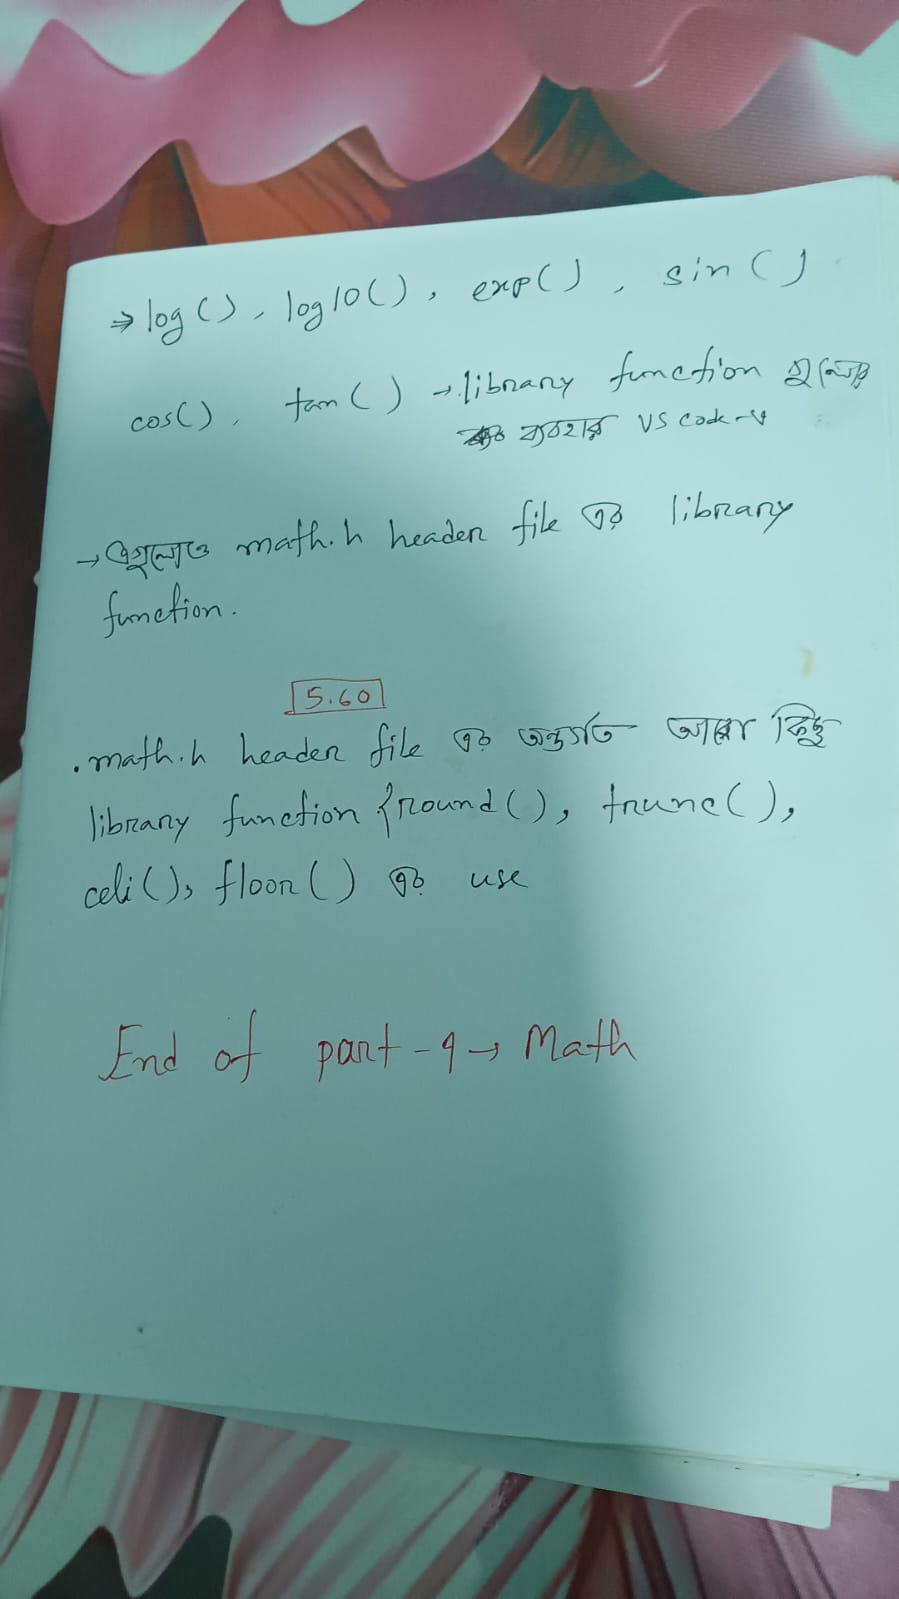 ⇒ log(), log10(), exp(), sin()
cos(), tan() → library function গুলোর
ব্যবহার VS code-এ
→ এগুলোও math.h header file এর library
function.
5.60
. math.h header file এর অন্তর্গত আরো কিছু
library function {round(), trunc(),
celi(), floor() এর use
End of part-9 → Math